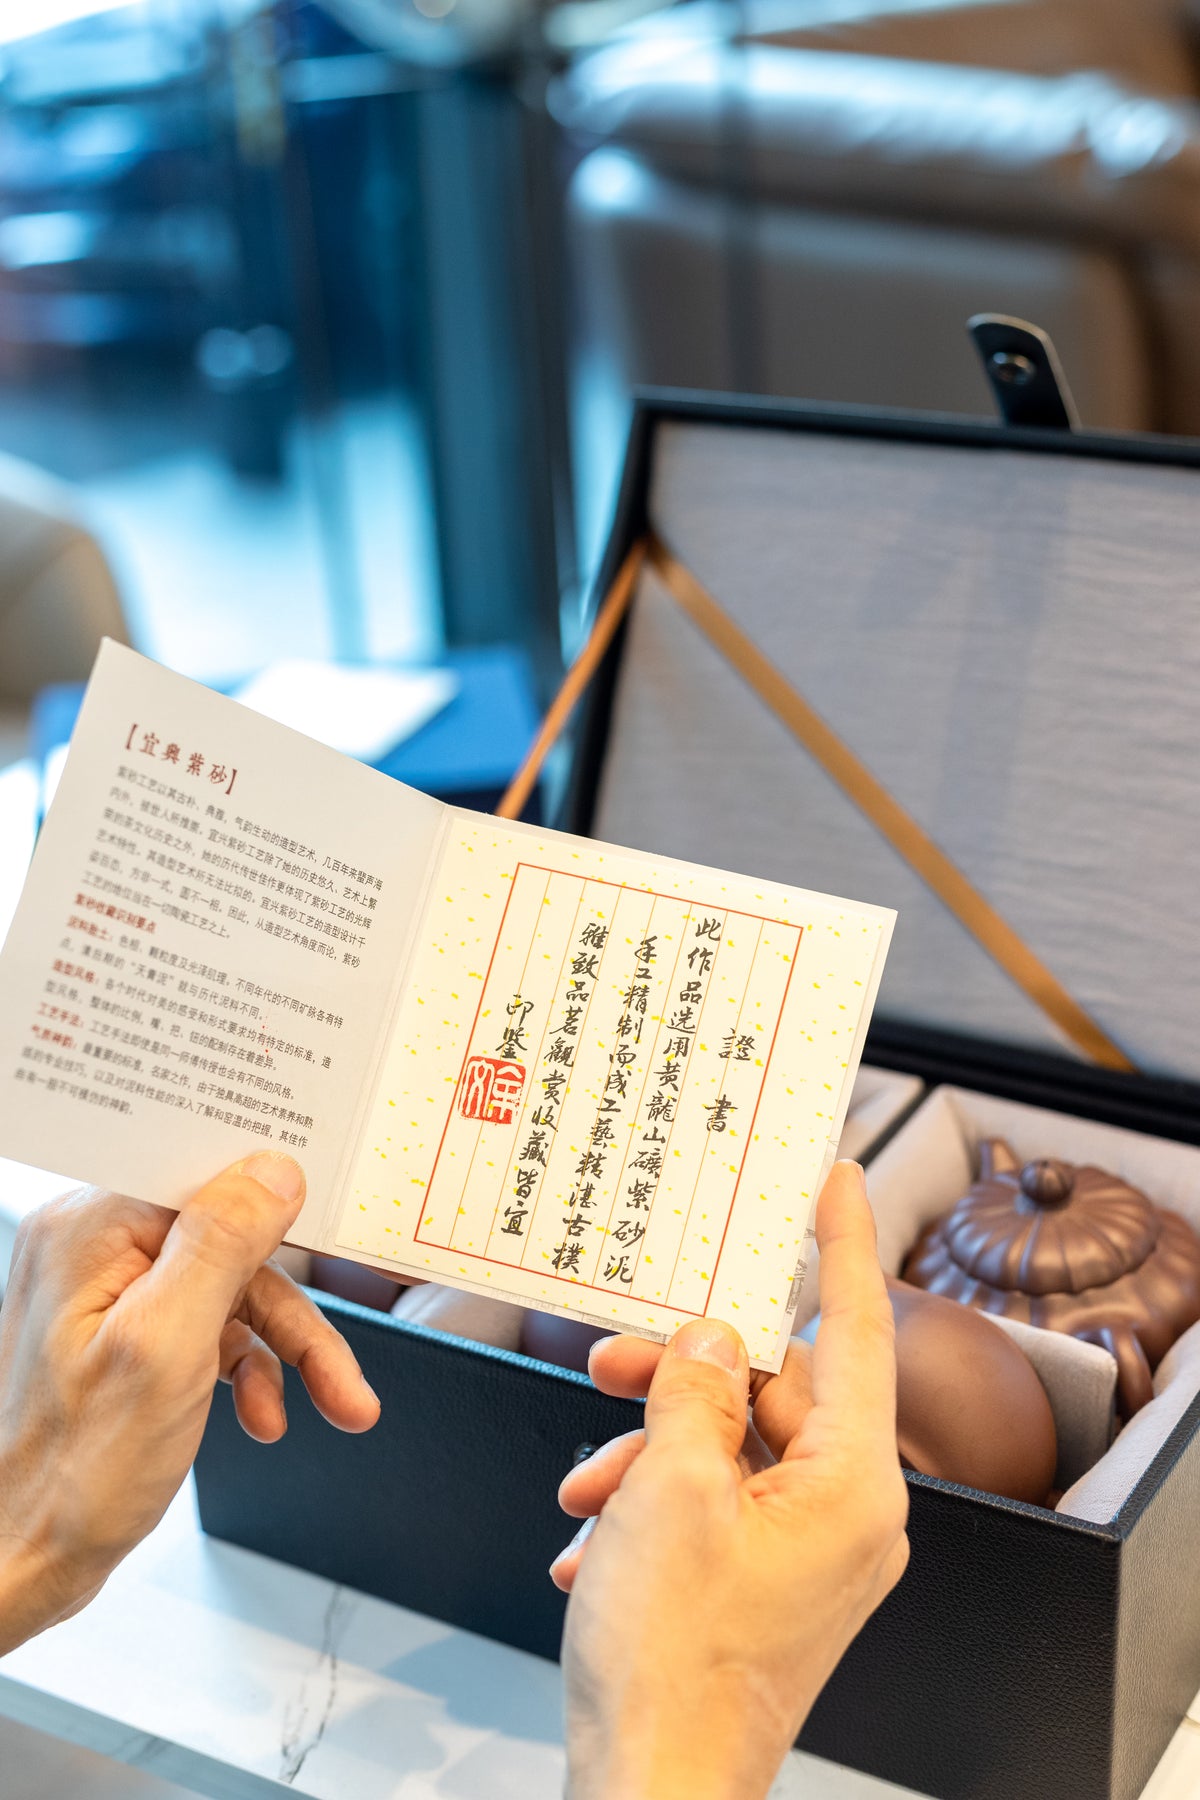 【宜興紫砂】
紫砂工艺以其古朴、典雅，气韵生动的造型艺术，几百年来蜚声海
内外，被世人所推崇，宜兴紫砂工艺除了她的历史悠久、艺术上繁
荣的茶文化历史之外，她的历代传世佳作更体现了紫砂工艺的光辉
艺术特性，其造型艺术所无法比拟的，宜兴紫砂工艺的造型设计千
姿百态，方非一式，圆不一相，因此，从造型艺术角度而论，紫砂
工艺的地位当在一切陶瓷工艺之上。
紫砂收藏识别要点
泥料胎土：色相、颗粒度及光泽肌理，不同年代的不同矿脉各有特
点，清后期的“天青泥”就与历代泥料不同。
造型风格：各个时代对美的感受和形式要求均有特定的标准，造
型风格，整体的比例，嘴、把、钮的配制存在着差异。
工艺手法：工艺手法即使是同一师傅传授也会有不同的风格。
气质神韵：最重要的标准，名家之作，由于独具高超的艺术素养和熟
练的专业技巧，以及对泥料性能的深入了解和窑温的把握，其佳作
自有一股不可模仿的神韵。
證書
此作品选用黄龍山礦紫砂泥
手工精制而成工藝精湛古樸
雅致品茗觀赏收藏皆宜
印鉴